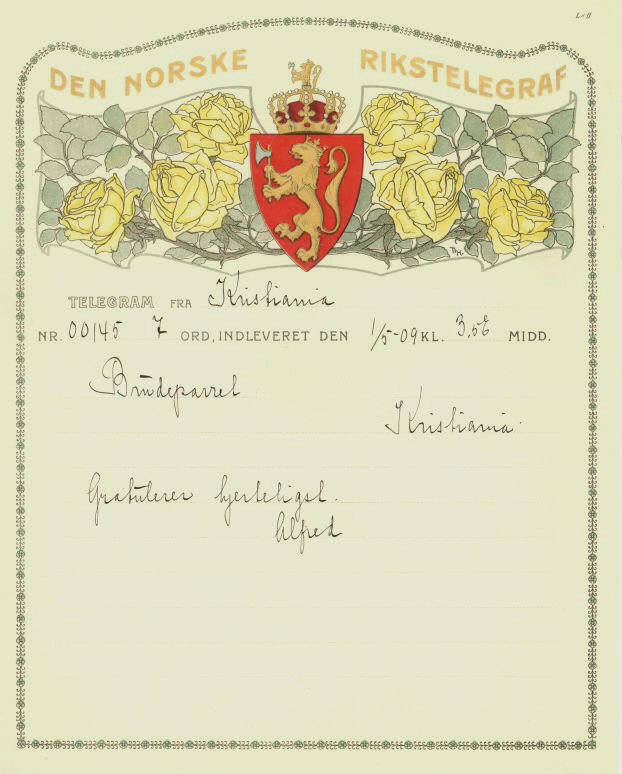 L×II
DEN NORSKE RIKSTELEGRAF
TELEGRAM FRA Kristiania
NR. 00145 7 ORD, INDLEVERET DEN 1/5-09 KL. 3,56 MIDD.
Brudeparret
Kristiania.
Gratulerer hjerteligst.
Alfred